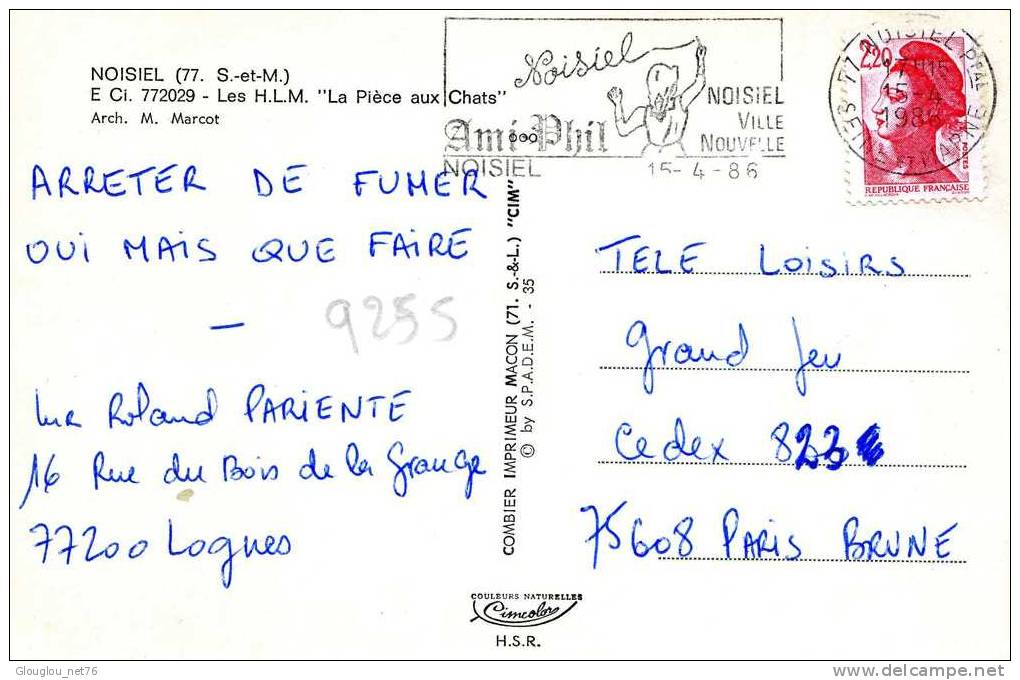 NOISIEL (77. S.-et-M.)
E Ci. 772029 - Les H.L.M. "La Pièce aux Chats"
Arch. M. Marcot
Noisiel
Ami Phil
NOISIEL
NOISIEL
VILLE
NOUVELLE
15-4-86
77 NOISIEL PPAL
15-4
1986
SEINE ET MARNE
2,20
POSTES
REPUBLIQUE FRANÇAISE
ARRETER DE FUMER
OUI MAIS QUE FAIRE
—
9255
Mr Roland PARIENTE
16 Rue du Bois de la Grange
77200 Lognes
COMBIER IMPRIMEUR MACON (71. S.-&-L.) "CIM"
© by S.P.A.D.E.M. - 35
TELE LOISIRS
Grand Jeu
Cedex 823
75608 PARIS BRUNE
COULEURS NATURELLES
Cimcolor
H.S.R.
Glouglou_net76
www.delcampe.net